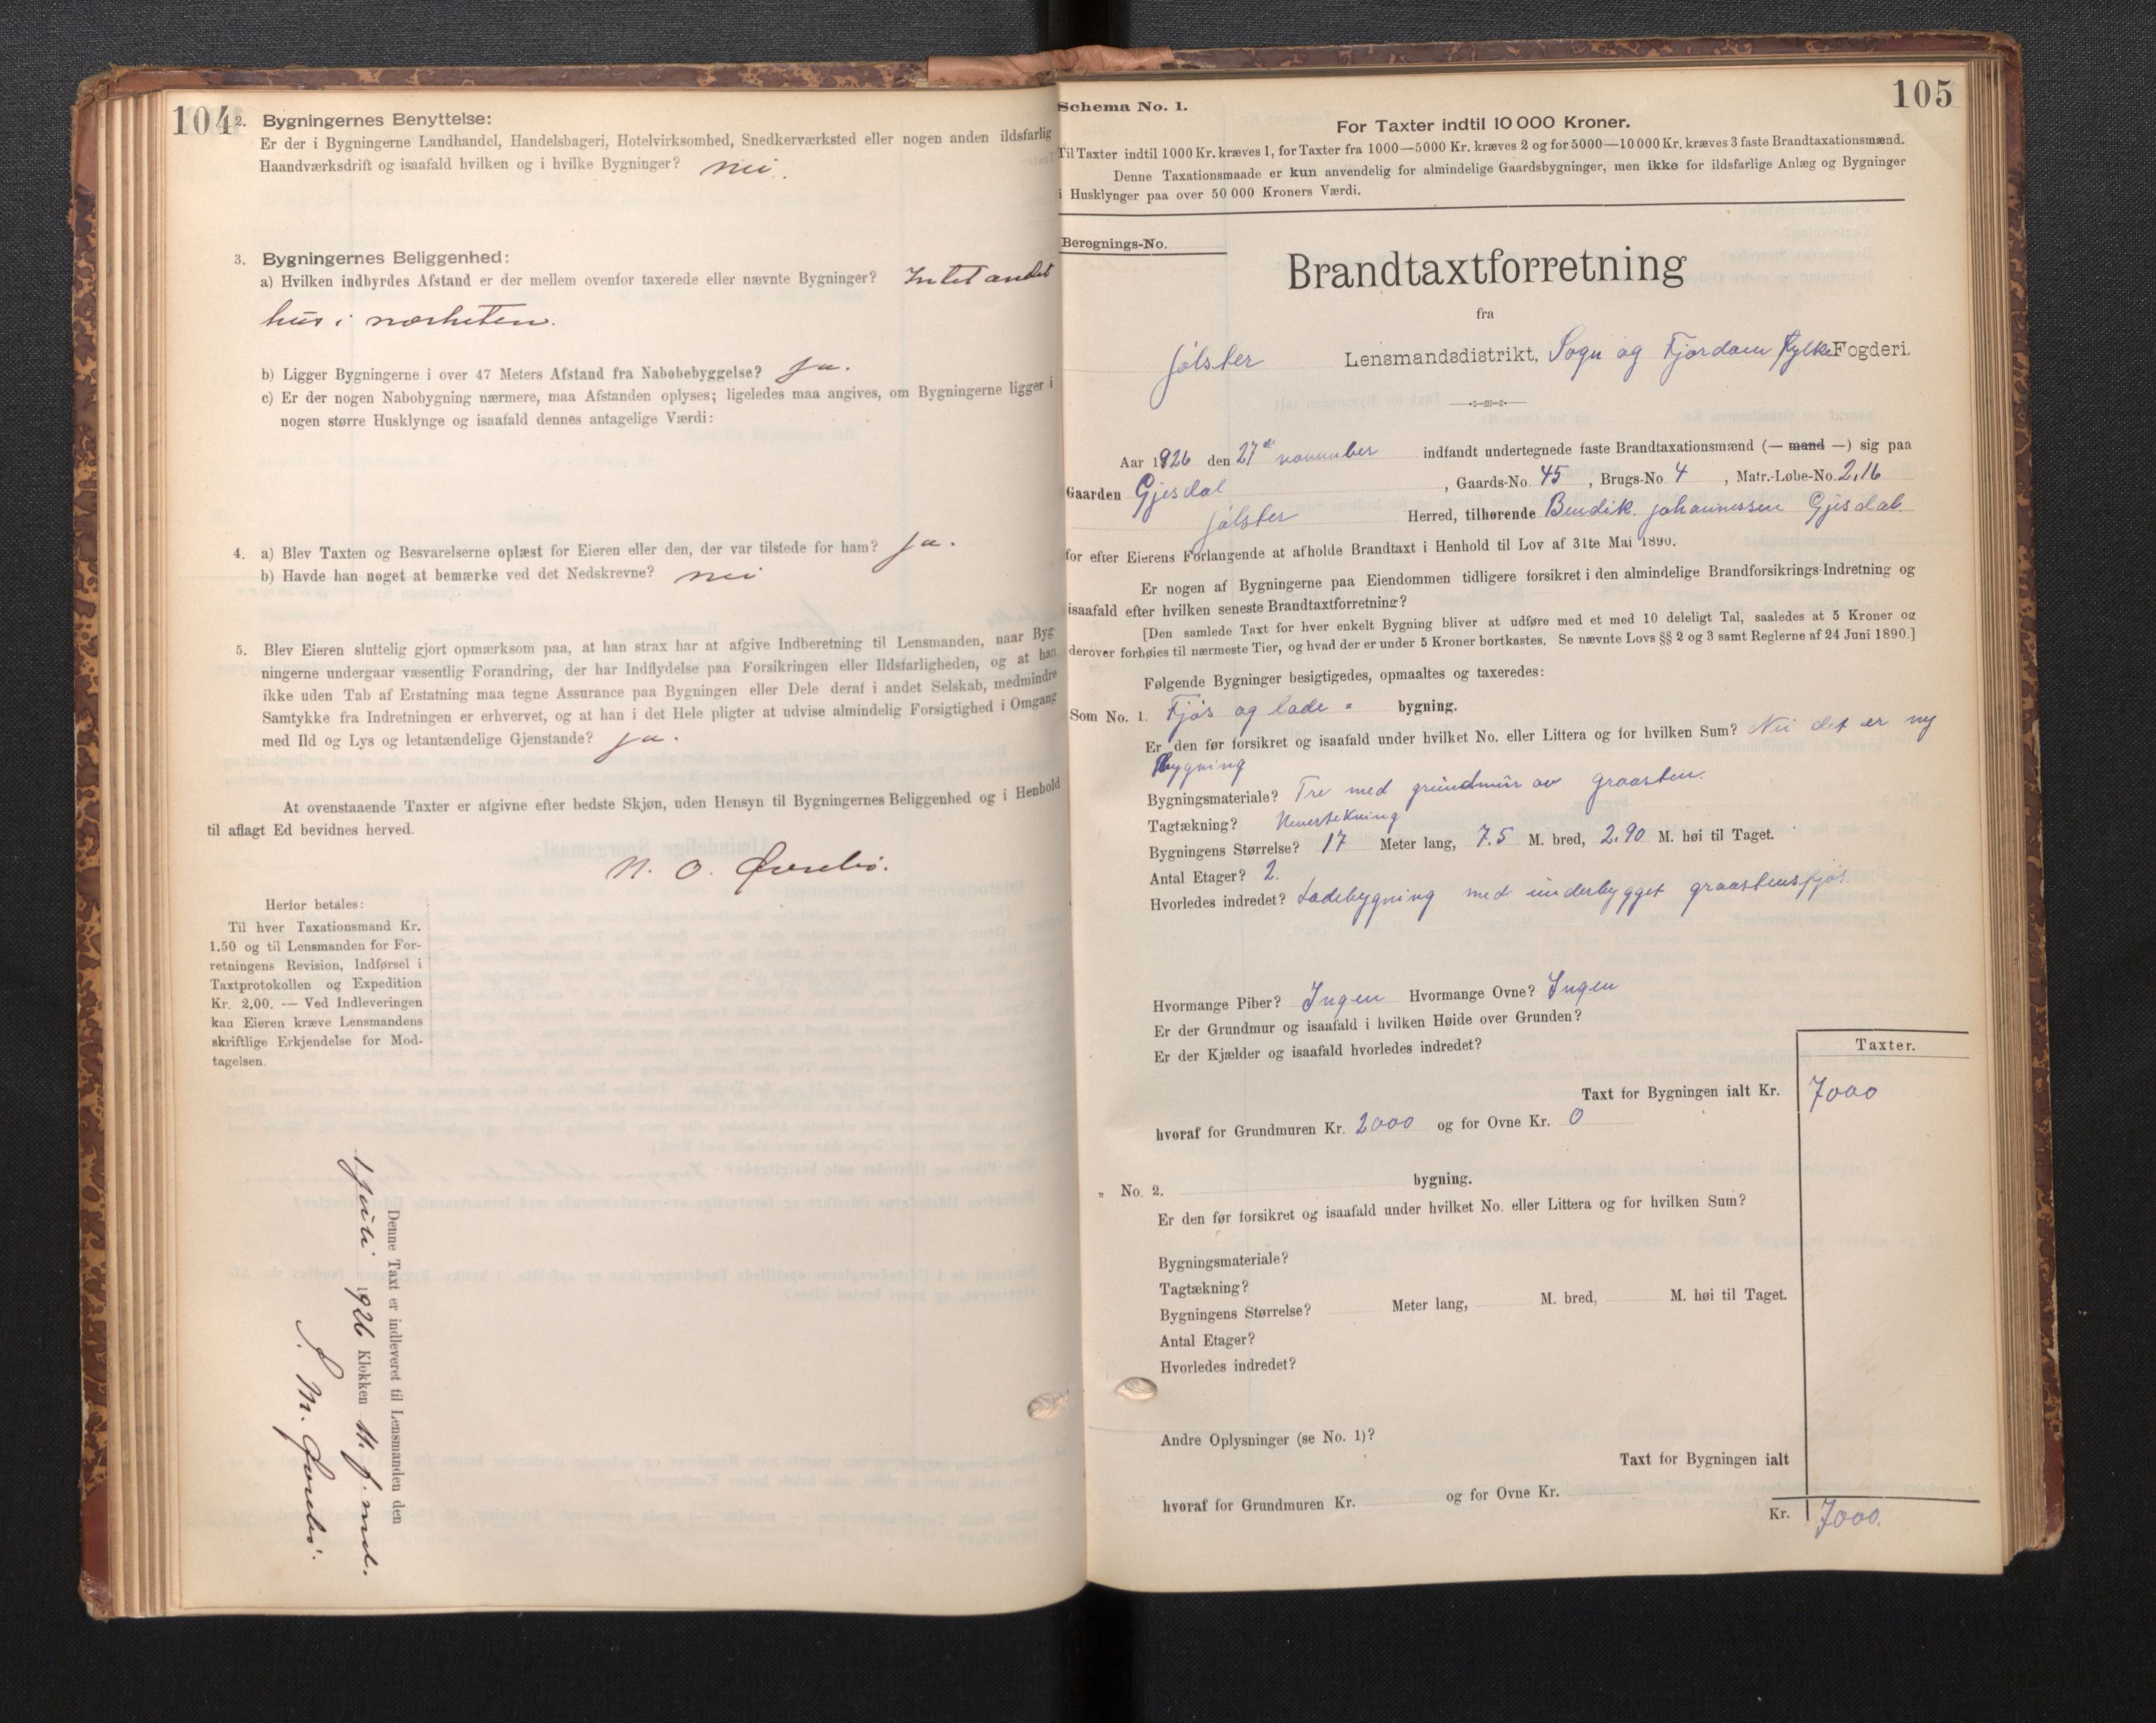 104
2. Bygningernes Benyttelse:
Er der i Bygningerne Landhandel, Handelsbageri, Hotelvirksomhed, Snedkerværksted eller nogen anden ildsfarlig
Haandværksdrift og isaafald hvilken og i hvilke Bygninger? nei.
3. Bygningernes Beliggenhed:
a) Hvilken indbyrdes Afstand er der mellem ovenfor taxerede eller nævnte Bygninger? Intet andet
hus i nærheten.
b) Ligger Bygningerne i over 47 Meters Afstand fra Nabobebyggelse? Ja.
c) Er der nogen Nabobygning nærmere, maa Afstanden oplyses; ligeledes maa angives, om Bygningerne ligger i
nogen større Husklynge og isaafald dennes antagelige Værdi:
4. a) Blev Taxten og Besvarelserne oplæst for Eieren eller den, der var tilstede for ham? Ja.
b) Havde han noget at bemærke ved det Nedskrevne? nei
5. Blev Eieren sluttelig gjort opmærksom paa, at han strax har at afgive Indberetning til Lensmanden, naar Byg-
ningerne undergaar væsentlig Forandring, der har Indflydelse paa Forsikringen eller Ildsfarligheden, og at han
ikke uden Tab af Erstatning maa tegne Assurance paa Bygningen eller Dele deraf i andet Selskab, medmindre
Samtykke fra Indretningen er erhvervet, og at han i det Hele pligter at udvise almindelig Forsigtighed i Omgang
med Ild og Lys og letantændelige Gjenstande? ja.
At ovenstaaende Taxter er afgivne efter bedste Skjøn, uden Hensyn til Bygningernes Beliggenhed og i Henhold
til aflagt Ed bevidnes herved.
N. O. Øvrebø.
Herfor betales:
Til hver Taxationsmand Kr.
1.50 og til Lensmanden for For-
retningens Revision, Indførsel i
Taxtprotokollen og Expedition
Kr. 2.00. — Ved Indleveringen
kan Eieren kræve Lensmandens
skriftlige Erkjendelse for Mod-
tagelsen.
Denne Taxt er indleveret til Lensmanden den
1 juli 1926 Klokken 11 f. md.
S. M. Øvrebø.
105
Schema No. 1.
For Taxter indtil 10 000 Kroner.
Til Taxter indtil 1000 Kr. kræves 1, for Taxter fra 1000—5000 Kr. kræves 2 og for 5000—10 000 Kr. kræves 3 faste Brandtaxationsmænd.
Denne Taxationsmaade er kun anvendelig for almindelige Gaardsbygninger, men ikke for ildsfarlige Anlæg og Bygninger
i Husklynger paa over 50 000 Kroners Værdi.
Beregnings-No.
Brandtaxtforretning
fra
Jølster Lensmandsdistrikt, Sogn og Fjordane fylke Fogderi.
Aar 1926 den 27de november indfandt undertegnede faste Brandtaxationsmænd (— mand —) sig paa
Gaarden Gjesdal, Gaards-No. 45, Brugs-No. 4, Matr.-Løbe-No. 2,16
Jølster Herred, tilhørende Bendik Johannessen Gjesdal.
for efter Eierens Forlangende at afholde Brandtaxt i Henhold til Lov af 31te Mai 1890.
Er nogen af Bygningerne paa Eiendommen tidligere forsikret i den almindelige Brandforsikrings-Indretning og
isaafald efter hvilken seneste Brandtaxtforretning?
[Den samlede Taxt for hver enkelt Bygning bliver at udføre med et med 10 deleligt Tal, saaledes at 5 Kroner og
derover forhøies til nærmeste Tier, og hvad der er under 5 Kroner bortkastes. Se nævnte Lovs §§ 2 og 3 samt Reglerne af 24 Juni 1890.]
Følgende Bygninger besigtigedes, opmaaltes og taxeredes:
Som No. 1. Fjøs og lade - bygning.
Er den før forsikret og isaafald under hvilket No. eller Littera og for hvilken Sum? Nei det er ny
bygning
Bygningsmateriale? Tre med grundmur av graasten.
Tagtækning? Nevertekning
Bygningens Størrelse? 17 Meter lang, 7.5 M. bred, 2.90 M. høi til Taget.
Antal Etager? 2.
Hvorledes indredet? Ladebygning med underbygget graastensfjøs.
Hvormange Piber? Ingen Hvormange Ovne? Ingen
Er der Grundmur og isaafald i hvilken Høide over Grunden?
Er der Kjælder og isaafald hvorledes indredet?
Taxter.
Taxt for Bygningen ialt Kr. 7000
hvoraf for Grundmuren Kr. 2000 og for Ovne Kr. 0
„ No. 2. bygning.
Er den før forsikret og isaafald under hvilket No. eller Littera og for hvilken Sum?
Bygningsmateriale?
Tagtækning?
Bygningens Størrelse? Meter lang, M. bred, M. høi til Taget.
Antal Etager?
Hvorledes indredet?
Andre Oplysninger (se No. 1)?
Taxt for Bygningen ialt
hvoraf for Grundmuren Kr. og for Ovne Kr.
Kr. 7000.